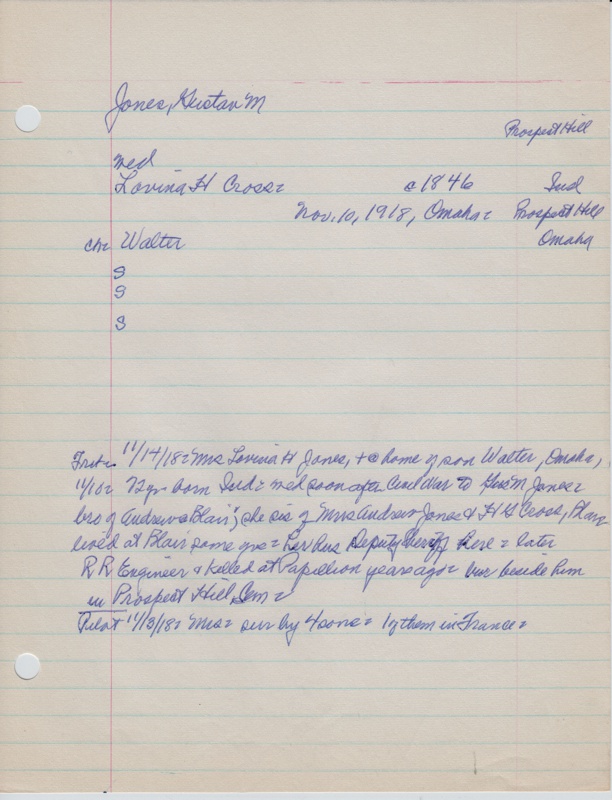 Jones, Gustav M
Prospect Hill
med
Lovina H Cross= c1846 Ind
Nov. 10, 1918, Omaha= Prospect Hill
Omaha
ch= Walter
S
S
S
11/14/18= Mrs Lovina H Jones, + @ home of son Walter, Omaha,
11/10= 72yr born Ind= med soon after Civil War to Gus M Jones=
bro of Andrew= Blair; she sis of Mrs Andrew Jones & H G Cross, Blair
lived at Blair some yrs= her hus Deputy Sheriff here= later
R R Engineer & killed at Papillion years ago= bur beside him
in Prospect Hill Cem=
Pilot 11/13/18= Mrs= sur by 4 sons= 1 of them in France=